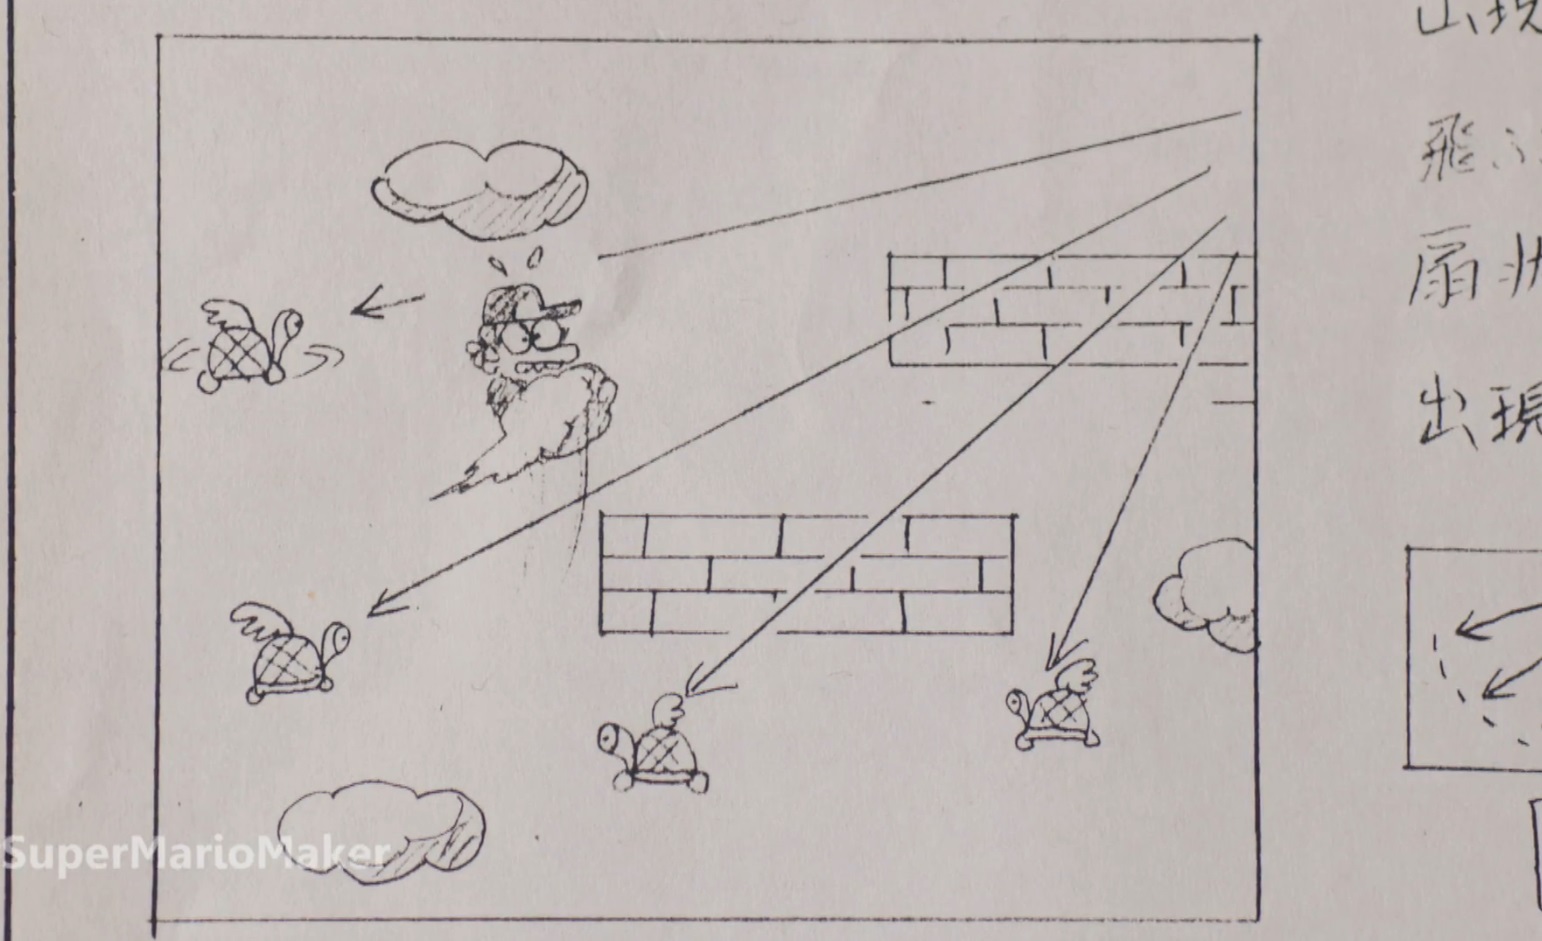 出現
飛ぶ
扇状
出現
SuperMarioMaker